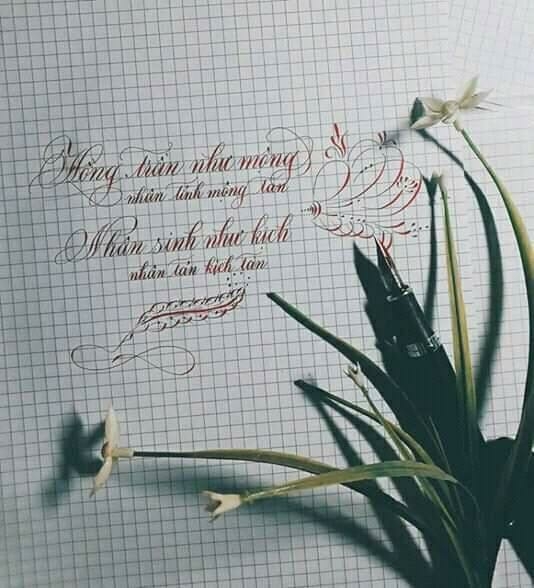 Hồng trần như mộng
nhân tỉnh mộng tàn
Nhân sinh như kịch
nhân tán kịch tàn